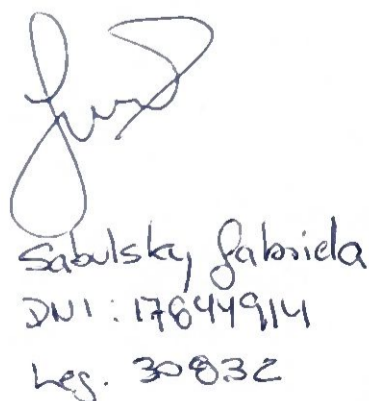 Sabulsky Gabriela
DNI: 17844914
Leg. 30832